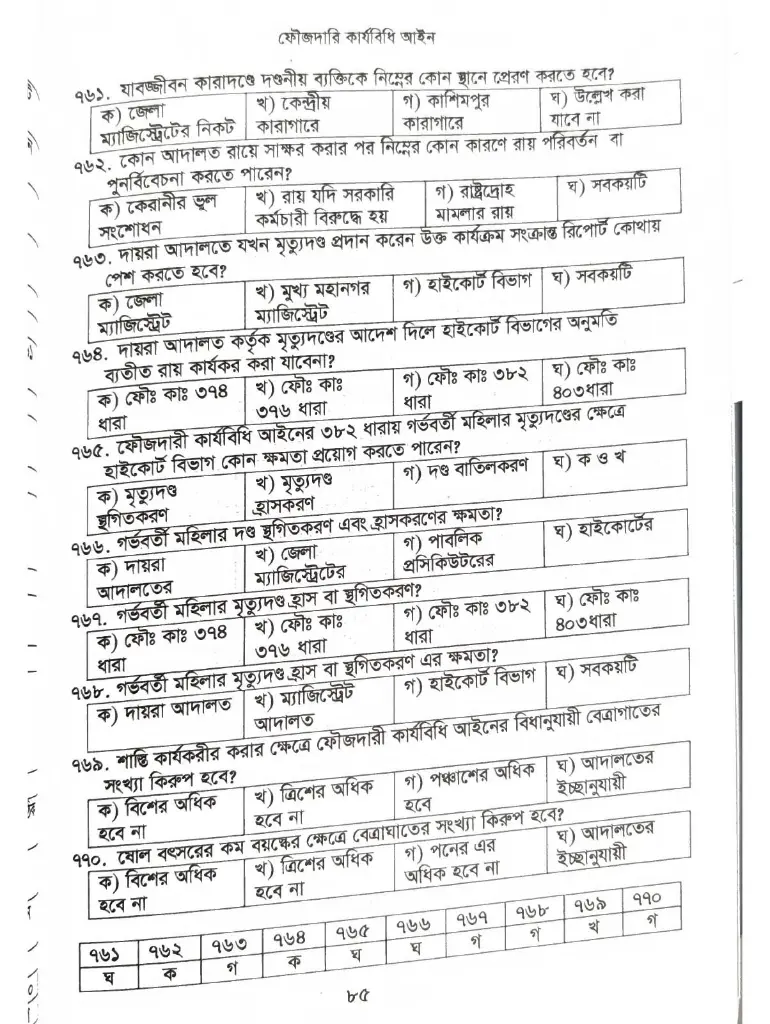 ফৌজদারি কার্যবিধি আইন
৭৬১. যাবজ্জীবন কারাদণ্ডে দণ্ডনীয় ব্যক্তিকে নিম্নের কোন স্থানে প্রেরণ করতে হবে?
ক) জেলা ম্যাজিস্ট্রেটের নিকট
খ) কেন্দ্রীয় কারাগারে
গ) কাশিমপুর কারাগারে
ঘ) উল্লেখ করা যাবে না
৭৬২. কোন আদালত রায়ে সাক্ষর করার পর নিম্নের কোন কারণে রায় পরিবর্তন বা
পুনর্বিবেচনা করতে পারেন?
ক) কেরানীর ভুল সংশোধন
খ) রায় যদি সরকারি কর্মচারী বিরুদ্ধে হয়
গ) রাষ্ট্রদ্রোহ মামলার রায়
ঘ) সবকয়টি
৭৬৩. দায়রা আদালতে যখন মৃত্যুদণ্ড প্রদান করেন উক্ত কার্যক্রম সংক্রান্ত রিপোর্ট কোথায়
পেশ করতে হবে?
ক) জেলা ম্যাজিস্ট্রেট
খ) মুখ্য মহানগর ম্যাজিস্ট্রেট
গ) হাইকোর্ট বিভাগ
ঘ) সবকয়টি
৭৬৪. দায়রা আদালত কর্তৃক মৃত্যুদণ্ডের আদেশ দিলে হাইকোর্ট বিভাগের অনুমতি
ব্যতীত রায় কার্যকর করা যাবেনা?
ক) ফৌঃ কাঃ ৩৭৪ ধারা
খ) ফৌঃ কাঃ ৩৭৬ ধারা
গ) ফৌঃ কাঃ ৩৮২ ধারা
ঘ) ফৌঃ কাঃ ৪০৩ধারা
৭৬৫. ফৌজদারী কার্যবিধি আইনের ৩৮২ ধারায় গর্ভবর্তী মহিলার মৃত্যুদণ্ডের ক্ষেত্রে
হাইকোর্ট বিভাগ কোন ক্ষমতা প্রয়োগ করতে পারেন?
ক) মৃত্যুদণ্ড স্থগিতকরণ
খ) মৃত্যুদণ্ড হ্রাসকরণ
গ) দণ্ড বাতিলকরণ
ঘ) ক ও খ
৭৬৬. গর্ভবর্তী মহিলার দণ্ড স্থগিতকরণ এবং হ্রাসকরণের ক্ষমতা?
ক) দায়রা আদালতের
খ) জেলা ম্যাজিস্ট্রেটের
গ) পাবলিক প্রসিকিউটরের
ঘ) হাইকোর্টের
৭৬৭. গর্ভবর্তী মহিলার মৃত্যুদণ্ড হ্রাস বা স্থগিতকরণ?
ক) ফৌঃ কাঃ ৩৭৪ ধারা
খ) ফৌঃ কাঃ ৩৭৬ ধারা
গ) ফৌঃ কাঃ ৩৮২ ধারা
ঘ) ফৌঃ কাঃ ৪০৩ধারা
৭৬৮. গর্ভবর্তী মহিলার মৃত্যুদণ্ড হ্রাস বা স্থগিতকরণ এর ক্ষমতা?
ক) দায়রা আদালত
খ) ম্যাজিস্ট্রেট আদালত
গ) হাইকোর্ট বিভাগ
ঘ) সবকয়টি
৭৬৯. শাস্তি কার্যকরীর করার ক্ষেত্রে ফৌজদারী কার্যবিধি আইনের বিধানুযায়ী বেত্রাগাতের
সংখ্যা কিরুপ হবে?
ক) বিশের অধিক হবে না
খ) ত্রিশের অধিক হবে না
গ) পঞ্চাশের অধিক হবে
ঘ) আদালতের ইচ্ছানুযায়ী
৭৭০. ষোল বৎসরের কম বয়স্কের ক্ষেত্রে বেত্রাঘাতের সংখ্যা কিরুপ হবে?
ক) বিশের অধিক হবে না
খ) ত্রিশের অধিক হবে না
গ) পনের এর অধিক হবে না
ঘ) আদালতের ইচ্ছানুযায়ী
৭৬১ ৭৬২ ৭৬৩ ৭৬৪ ৭৬৫ ৭৬৬ ৭৬৭ ৭৬৮ ৭৬৯ ৭৭০
ঘ ক গ ক ঘ ঘ গ গ খ গ
৮৫